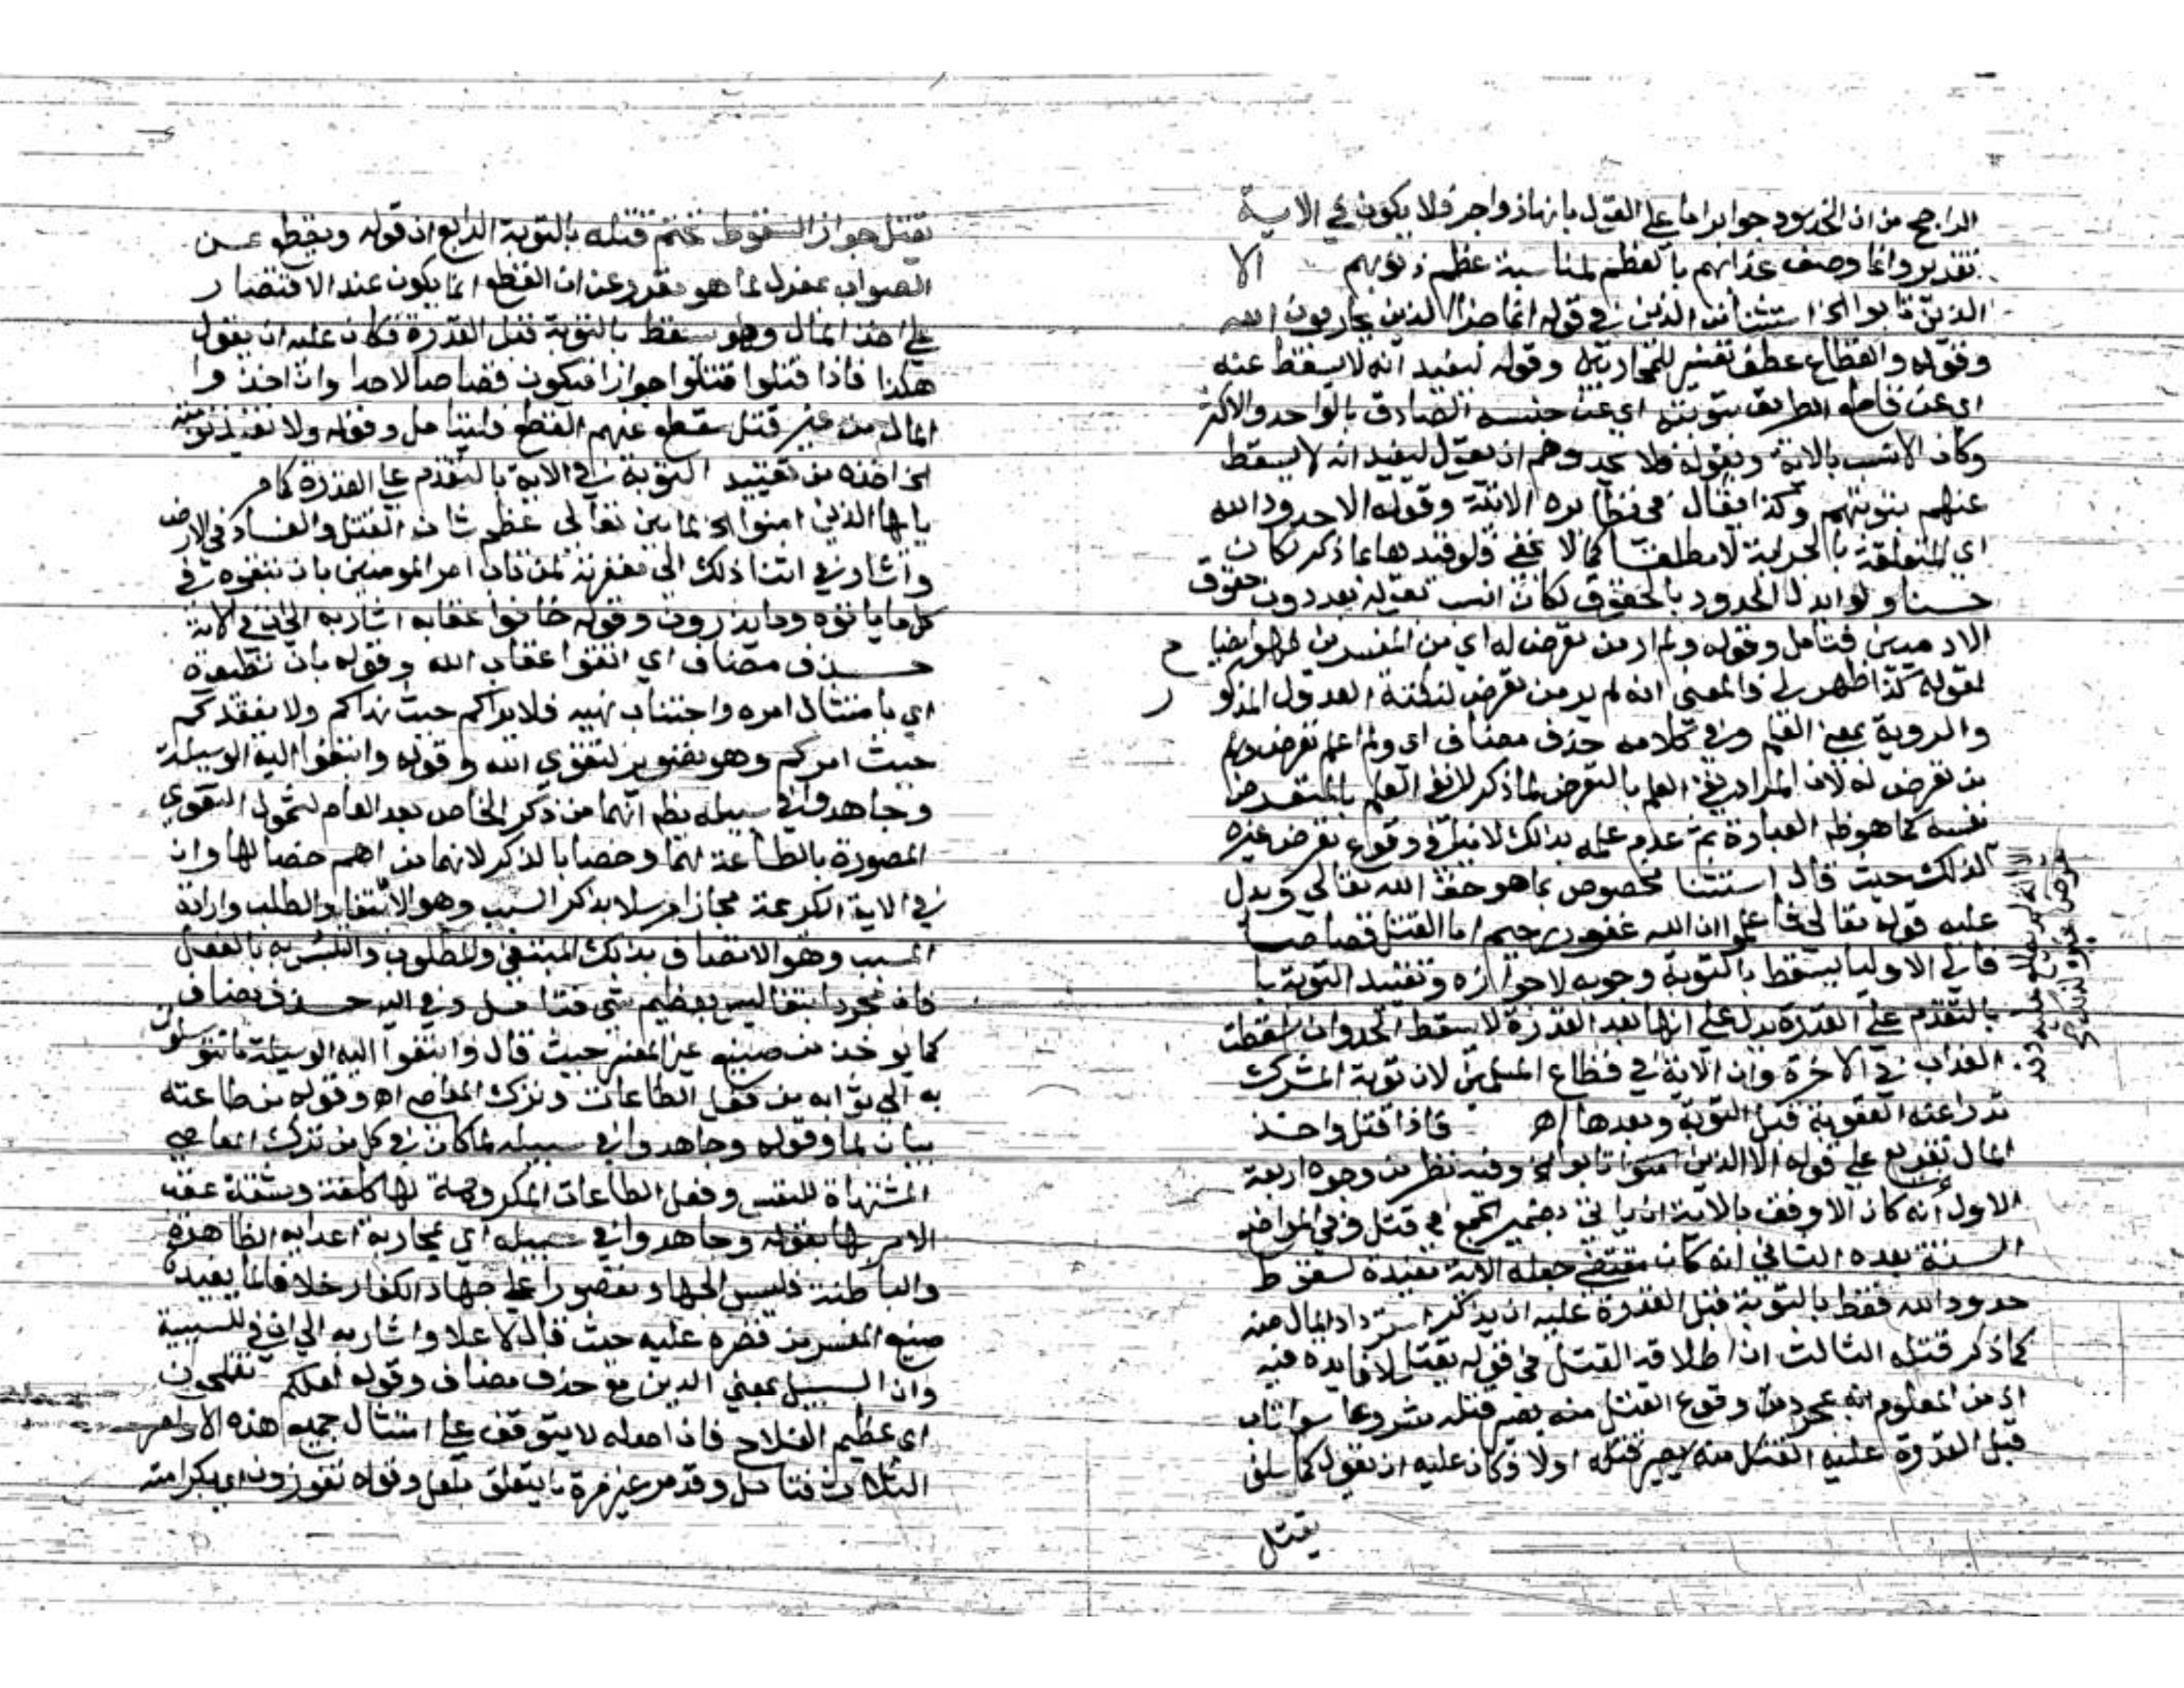 الراجح من ان الحدود جوابر اما على القول بانها زواجر فلا يكون في الاية
تقدير وانما وصف عذابهم بالعظم لمناسبة عظم ذنوبهم الا
الذين تابوا الخ استثنا من الذين في قوله انما جزا الذين يحاربون الله
وقوله والقطاع عطف تفسير للمحاربين وقوله ليفيد انه لا يسقط عنه
اي عن قاطع الطريق بتوبته اي عن جنسه الصادق بالواحد والاكثر
وكان الانسب بالاية وبقوله فلا تحدوهم ان يقول ليفيد انه لا يسقط
عنهم بتوبتهم وكذا يقال في نظايره الاتية وقوله الا حدود الله
اي المتعلقة بالحرابة لا مطلقا كما لا يخفى فلو قيدها بما ذكر لكان
حسنا ولو ابدل الحدود بالحقوق لكان انسب بقوله بعد دون حقوق
الادميين فتامل وقوله ولم ار من تعرض له اي من المفسرين
لقوله كذا ظهر لي والمعنى انه لم ير من تعرض لنكتة العدول المذكور
والروية بمعنى العلم وفي كلامه حذف مضاف اي ولم اعلم تعرض
من تعرض له لان المراد نفي العلم بالتعرض لما ذكر لا نفي العلم بالمتعرض
نفسه كما هو ظ العبارة ثم عدم علمه بذلك لا ينافي وقوع تعرض غيره
لذلك حيث قال استثنا مخصوص بما هو حق الله تعالى ويدل
عليه قوله تعالى فاعلموا ان الله غفور رحيم اما القتل قصاصا
فالى الاوليا يسقط بالتوبة وجوبه لا جوازه وتقييد التوبة با
بالتقدم على القدرة يدل على انها بعد القدرة لا تسقط الحد وان اسقطت
العذاب في الاخرة وان الاية في قطاع المسلمين لان توبة المشرك
تدرا عنه العقوبة قبل التوبة وبعدها اه فاذا قتل واخذ
المال تفريع على قوله الا الذين تابوا الخ وفيه نظر من وجوه اربعة
الاول انه كان الاوفق بالاية ان ياتي بضمير الجمع في قتل وفي المواضع
الستة بعده الثاني انه كان مقتضى جعله الاية مفيدة لسقوط
حدود الله فقط بالتوبة قبل القدرة عليه ان يذكر استرداد المال منه
كما ذكر قتله الثالث ان اطلاقه القتل في قوله يقتل لا فايدة فيه
اذ من المعلوم انه بمجرد وقوع القتل منه يصير قتله مشروعا سوا تاب
قبل القدرة عليه القتل منه يصير قتله اولا فكان عليه ان يقول كما سلف
يقتل
يقتل جواز السقوط تحتم قتله بالتوبة الرابع ان قوله ويقطع عن
الصواب بمعزل لما هو مقرر من ان القطع انما يكون عند الاقتصار
على اخذ المال وهو يسقط بالتوبة قبل القدرة فكان عليه ان يقول
هكذا فاذا قتلوا قتلوا جوازا فيكون قصاصا لا حدا وان اخذوا
المال من غير قتل سقط عنهم القطع فليتامل وقوله ولا تفيد توبته
الخ اخذه من تقييد التوبة في الاية بالتقدم على القدرة كما مر
يا ايها الذين امنوا الخ لما بين تعالى عظم شان القتل والفساد في الارض
واشار في اثنا ذلك الى مغفرته لمن تاب امر المومنين بان يتقوه في
كل ما ياتون وما يذرون وقوله خافوا عقابه اشار به الى ان في الاية
حذف مضاف اي اتقوا عقاب الله وقوله بان تطيعوه
اي بامتثال امره واجتناب نهيه فلا يراكم حيث نهاكم ولا يفقدكم
حيث امركم وهو تصوير لتقوى الله وقوله وابتغوا اليه الوسيلة
وجاهدوا في سبيله يظهر انهما من ذكر الخاص بعد العام لشمول التقوى
المصورة بالطاعة لهما وخصا بالذكر لانهما من اهم خصالها وان
في الاية الكريمة مجازا مرسلا بذكر السبب وهو الابتغا والطلب وارادة
المسبب وهو الاتصاف بذلك المبتغى والمطلوب والتلبس به بالفعل
فان مجرد ابتغا ليس بعظيم شي فتامل وفي اليه حذف مضاف
كما يوخذ من صنيع غير المفسر حيث قال وابتغوا اليه الوسيلة ما تتوسلون
به الى ثوابه من فعل الطاعات وترك المعاصي اه وقوله من طاعته
بيان لما وقوله وجاهدوا في سبيله لما كان في كل من ترك المعاصي
المشتهاة للنفس وفعل الطاعات المكروهة لها كلفة ومشقة عقب
الامر بها بقوله وجاهدوا في سبيله اي بمحاربة اعدايه الظاهرة
والباطنة فليس الجهاد مقصورا على جهاد الكفار خلافا لما يفيده
صنيع المفسر من قصره عليه حيث قال لاعلا واشار به الى ان في للسببية
وان السبيل بمعنى الدين مع حذف مضاف وقوله لعلكم تفلحون
اي عظيم الفلاح فان اصله لا يتوقف على امتثال جميع هذه الاوامر
الثلاث فتامل وقد مر غير مرة ما يتعلق بلعل وقوله تفوزون اي بكرامته